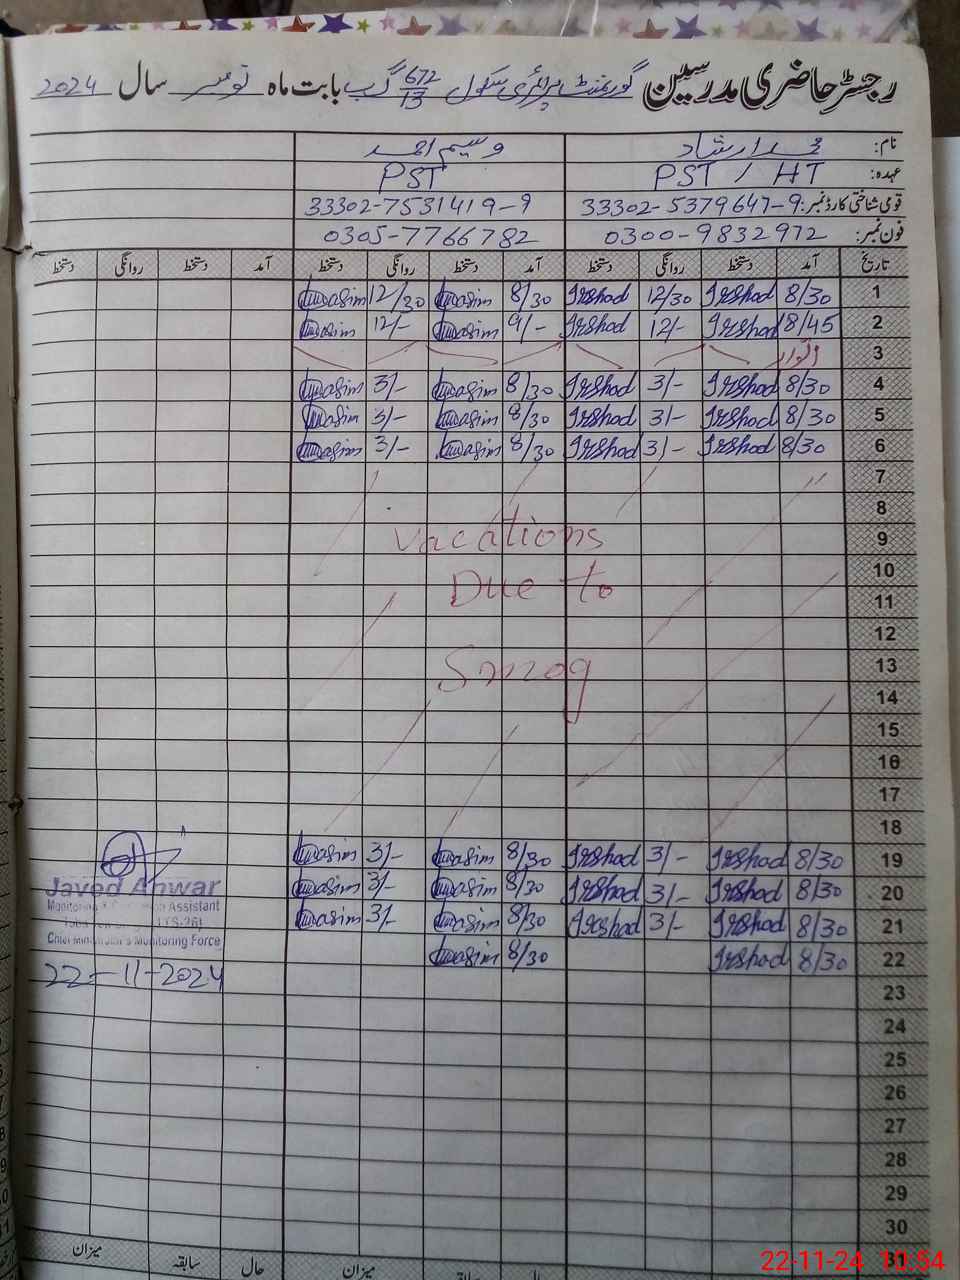 رجسٹر حاضری مدرسین گورنمنٹ پرائمری سکول 672/13 گ ب بابت ماہ نومبر سال 2024
نام: محمد ارشاد وسیم احمد
عہدہ: PST / HT PST
قومی شناختی کارڈ نمبر: 33302-5379647-9 33302-7531419-9
فون نمبر: 0300-9832972 0305-7766782
تاریخ آمد دستخط روانگی دستخط آمد دستخط روانگی دستخط آمد دستخط روانگی دستخط
1 8/30 Irshad 12/30 Irshad 8/30 Wasim 12/30 Wasim
2 8/45 Irshad 12/- Irshad 9/- Wasim 12/- Wasim
3 اتوار
4 8/30 Irshad 3/- Irshad 8/30 Wasim 3/- Wasim
5 8/30 Irshad 3/- Irshad 8/30 Wasim 3/- Wasim
6 8/30 Irshad 3/- Irshad 8/30 Wasim 3/- Wasim
7
8
9 Vacations
10 Due to
11
12
13 Smog
14
15
16
17
18
19 8/30 Irshad 3/- Irshad 8/30 Wasim 3/- Wasim
20 8/30 Irshad 3/- Irshad 8/30 Wasim 3/- Wasim
21 8/30 Irshad 3/- Irshad 8/30 Wasim 3/- Wasim
22 8/30 Irshad 8/30 Wasim
Javed Anwar
Monitoring Assistant
Chief Minister's Monitoring Force
22-11-2024
23
24
25
26
27
28
29
30
31
میزان حال سابقہ میزان
22-11-24 10:54